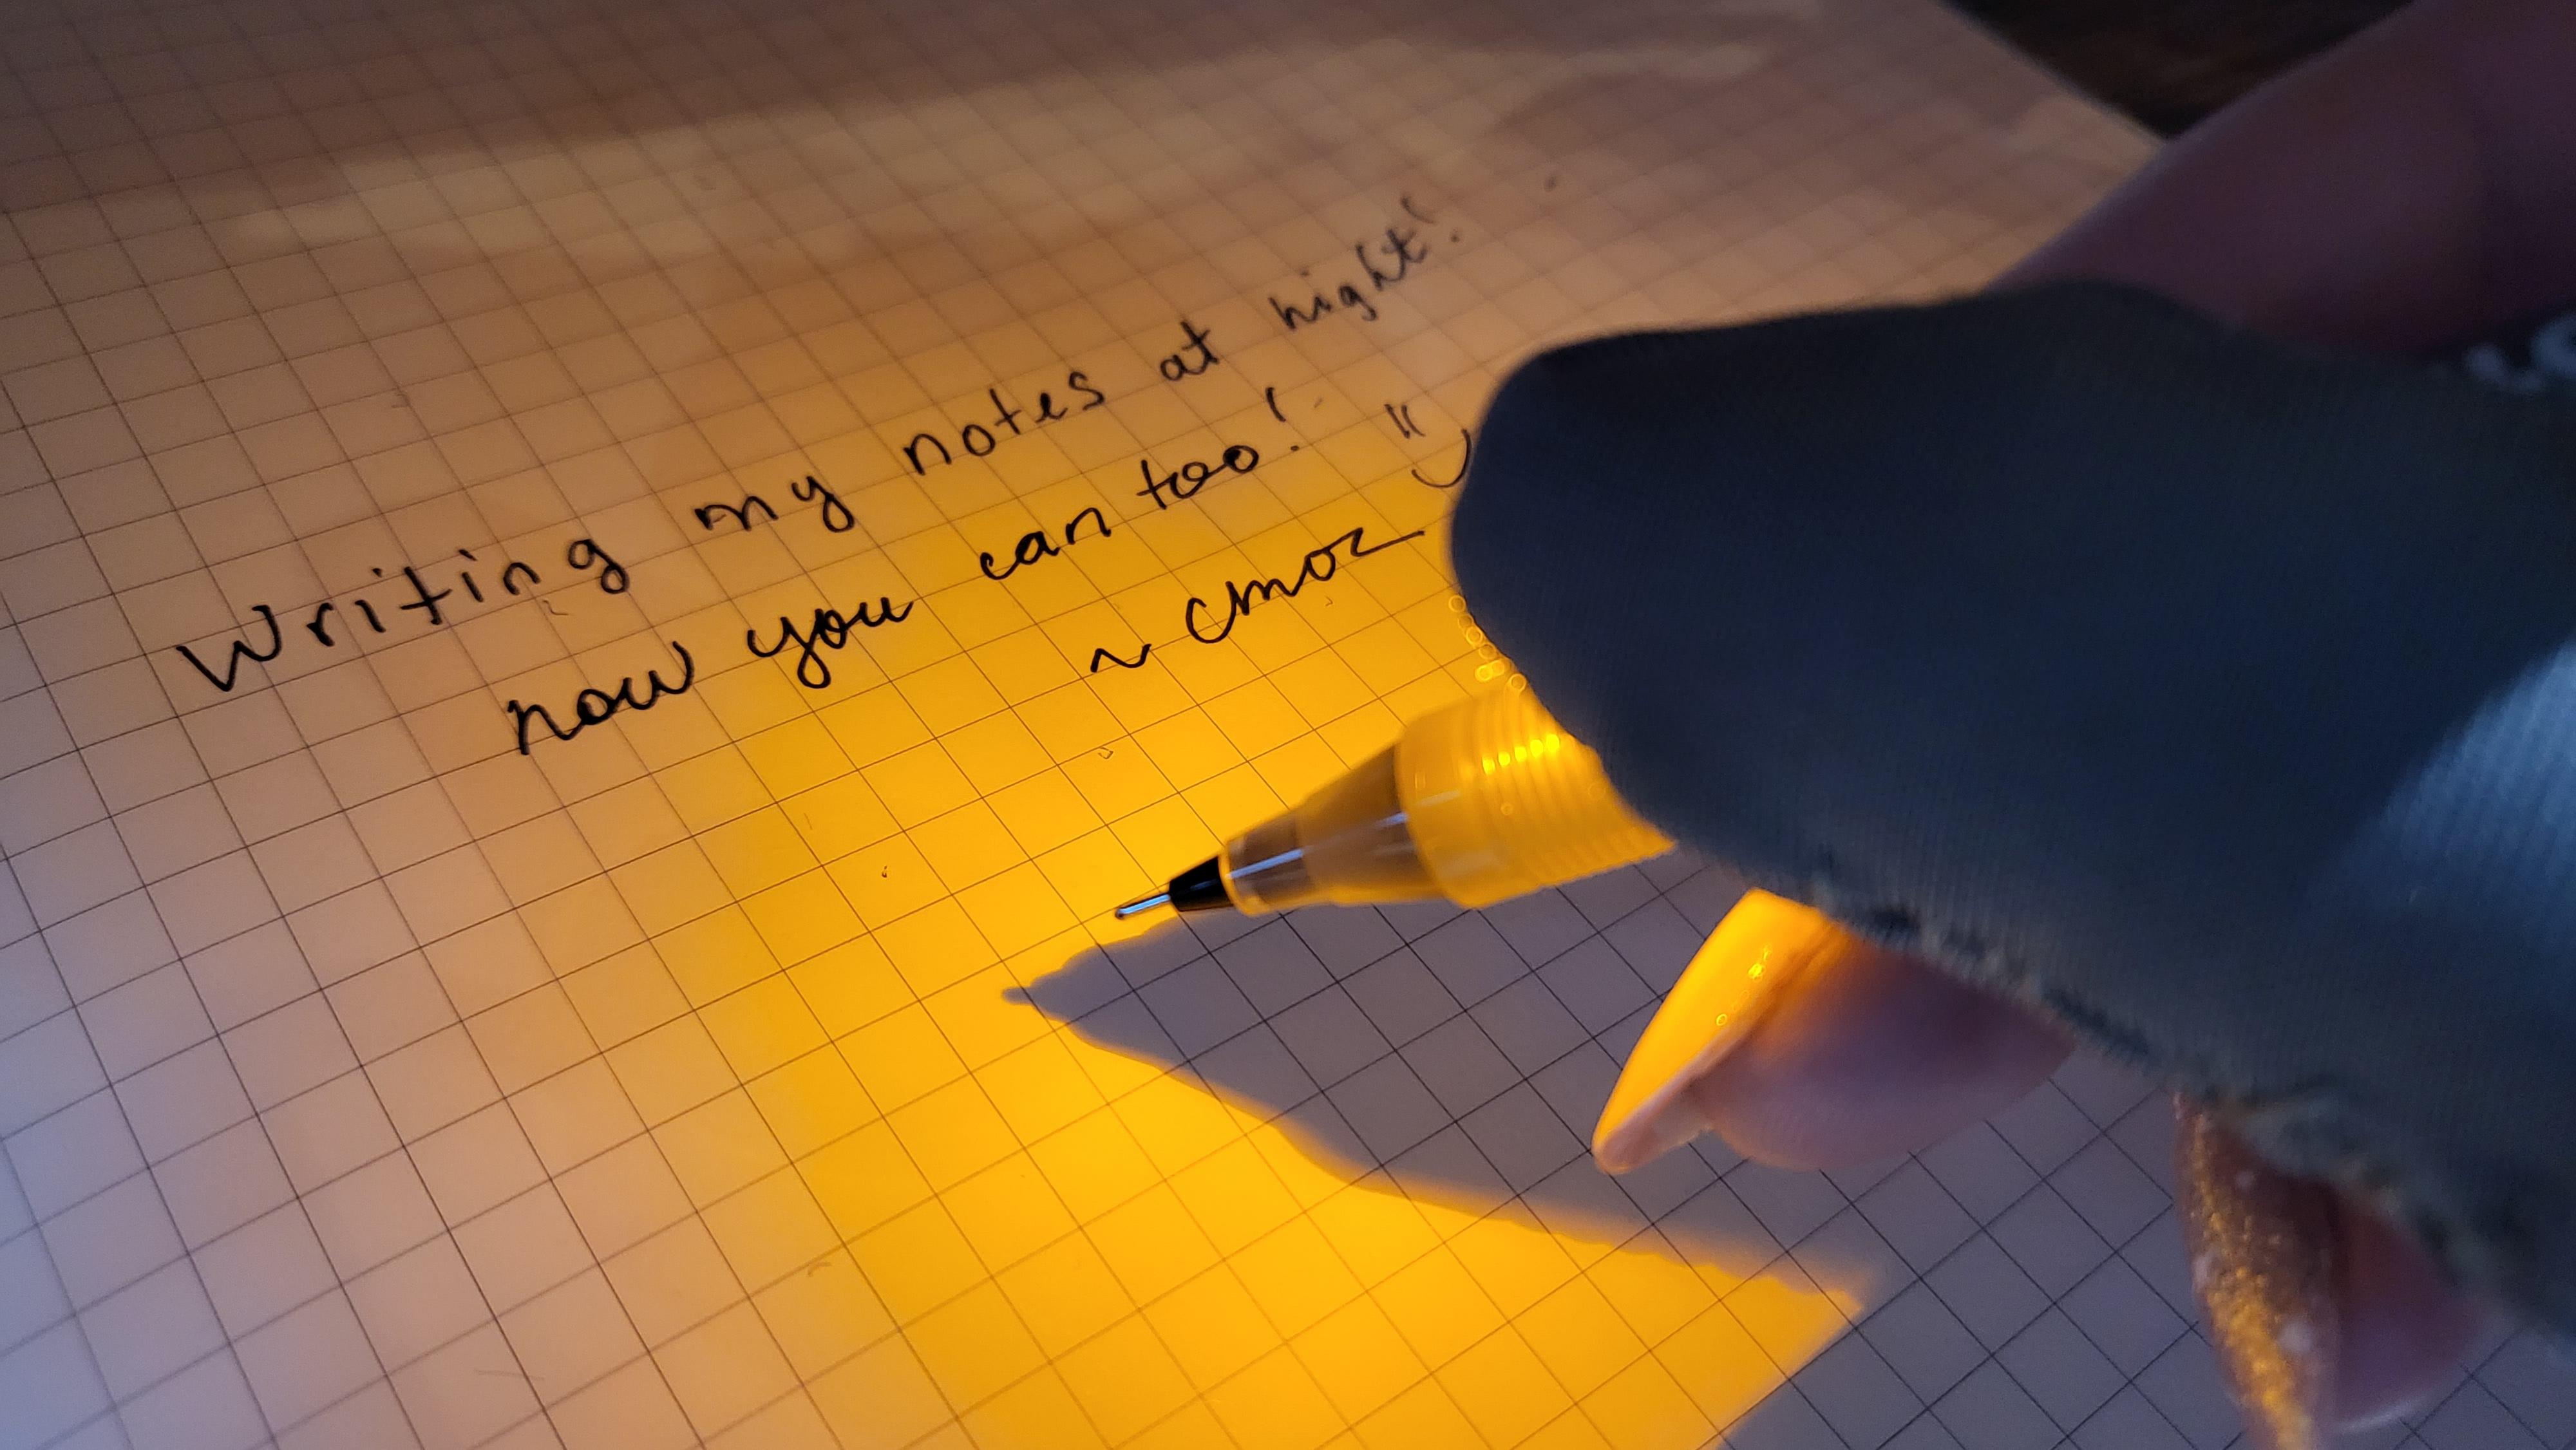 Writing my notes at night!
now you can too! "
~ cmoz